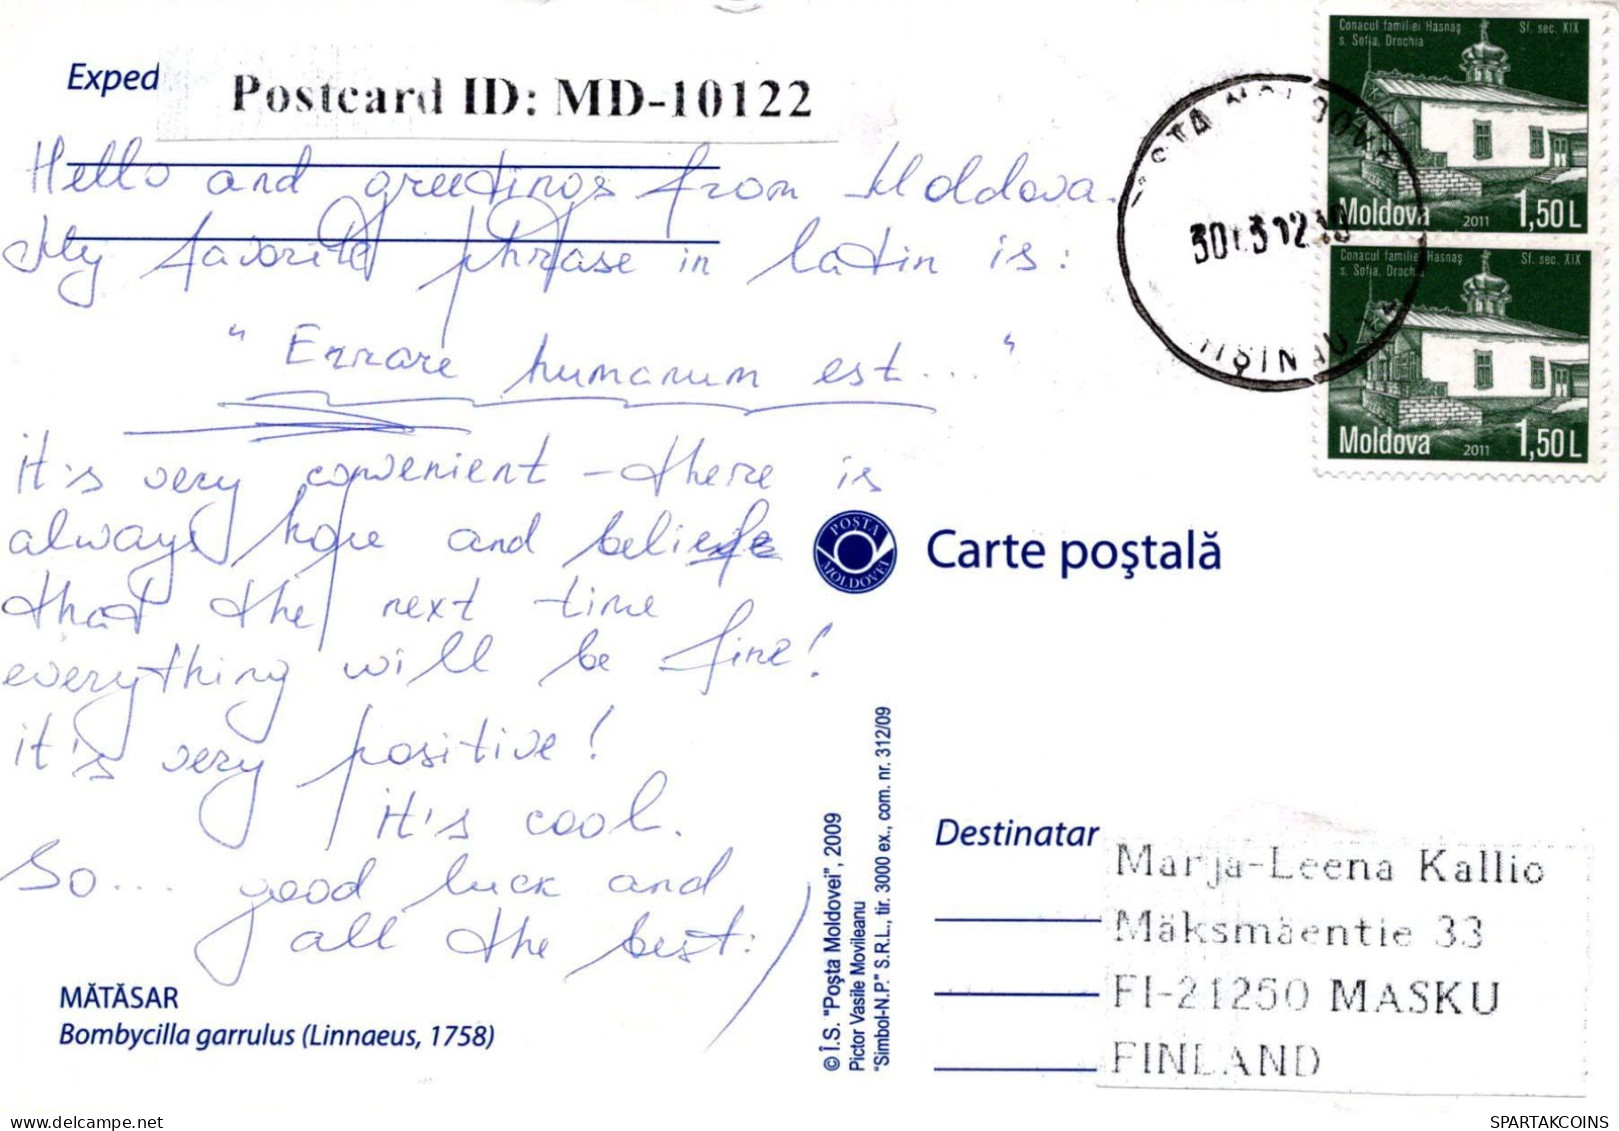 Exped
Postcard ID: MD-10122
Hello and greetings from Moldova.
My favorite phrase in latin is:
"Errare humanum est..."
it's very convenient - there is
always hope and beliefe
that the next time
everything will be fine!
it's very positive!
it's cool.
So... good luck and
all the best :)
MĂTĂSAR
Bombycilla garrulus (Linnaeus, 1758)
© Î.S. "Poşta Moldovei", 2009
Pictor Vasile Movileanu
"Simbol-N.P." S.R.L., tir. 3000 ex., com. nr. 312/09
Conacul familiei Hasnaş Sf. sec. XIX
s. Sofia, Drochia
Moldova 2011 1,50L
Conacul familiei Hasnaş Sf. sec. XIX
s. Sofia, Drochia
Moldova 2011 1,50L
POŞTA
MOLDOVEI
Carte poştală
Destinatar
Marja-Leena Kallio
Mäksmäentie 33
FI-21250 MASKU
FINLAND
SPARTAKCOINS